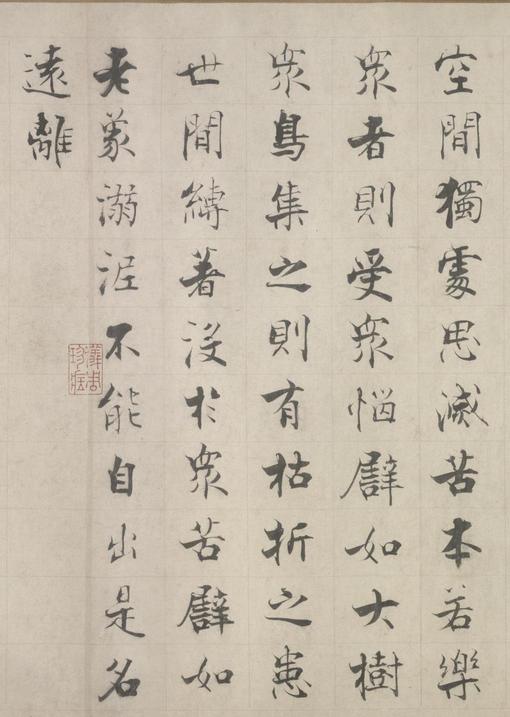 空閒獨處思滅苦本若樂
衆者則受衆惱譬如大樹
衆鳥集之則有枯折之患
世間縛著没於衆苦譬如
老象溺泥不能自出是名
遠離